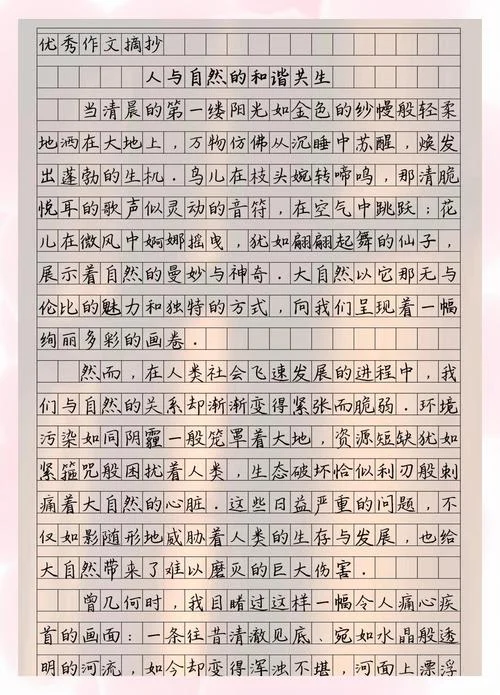 优秀作文摘抄
人与自然的和谐共生
当清晨的第一缕阳光如金色的纱幔般轻柔
地洒在大地上，万物仿佛从沉睡中苏醒，焕发
出蓬勃的生机．鸟儿在枝头婉转啼鸣，那清脆
悦耳的歌声似灵动的音符，在空气中跳跃；花
儿在微风中婀娜摇曳，犹如翩翩起舞的仙子，
展示着自然的曼妙与神奇．大自然以它那无与
伦比的魅力和独特的方式，向我们呈现着一幅
绚丽多彩的画卷．
然而，在人类社会飞速发展的进程中，我
们与自然的关系却渐渐变得紧张而脆弱．环境
污染如同阴霾一般笼罩着大地，资源短缺犹如
紧箍咒般困扰着人类，生态破坏恰似利刃般刺
痛着大自然的心脏．这些日益严重的问题，不
仅如影随形地威胁着人类的生存与发展，也给
大自然带来了难以磨灭的巨大伤害．
曾几何时，我目睹过这样一幅令人痛心疾
首的画面：一条往昔清澈见底、宛如水晶般透
明的河流，如今却变得浑浊不堪，河面上漂浮